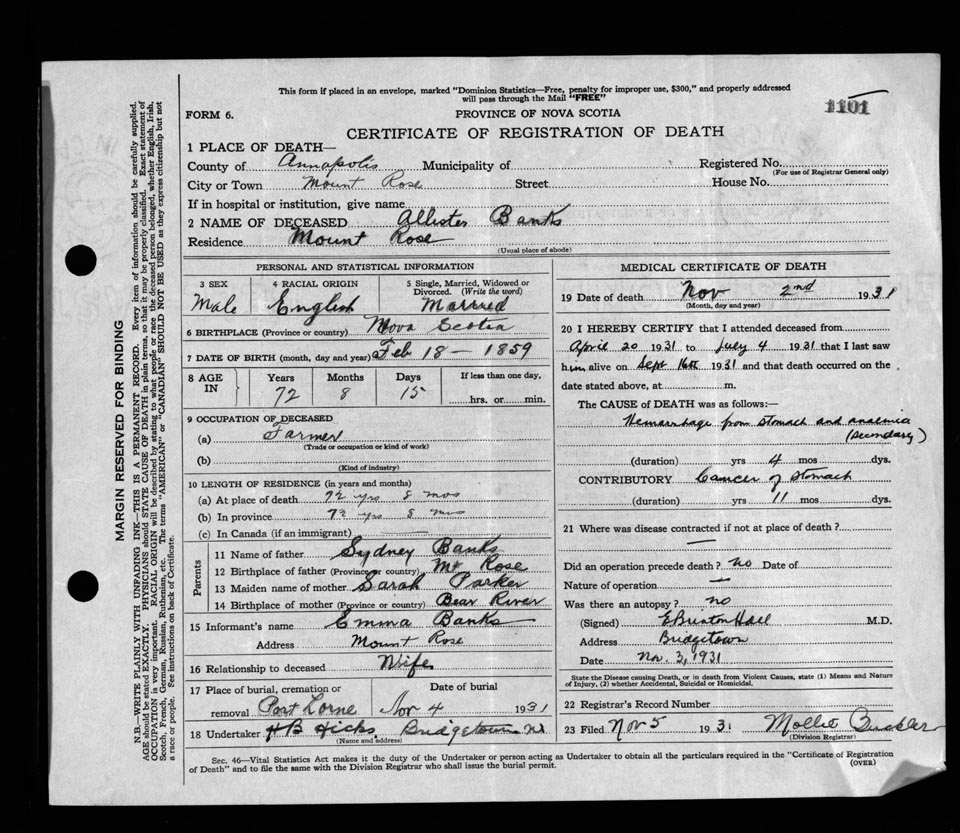 This form if placed in an envelope, marked "Dominion Statistics—Free, penalty for improper use, $300," and properly addressed
will pass through the Mail "FREE"
1101
FORM 6.
PROVINCE OF NOVA SCOTIA
CERTIFICATE OF REGISTRATION OF DEATH
1 PLACE OF DEATH—
County of Annapolis Municipality of Registered No.
(For use of Registrar General only)
City or Town Mount Rose Street House No.
If in hospital or institution, give name
2 NAME OF DECEASED Allister Banks
Residence Mount Rose
(Usual place of abode)
PERSONAL AND STATISTICAL INFORMATION
3 SEX 4 RACIAL ORIGIN 5 Single, Married, Widowed or
Divorced. (Write the word)
Male English Married
6 BIRTHPLACE (Province or country) Nova Scotia
7 DATE OF BIRTH (month, day and year) Feb 18 - 1859
8 AGE IN Years Months Days If less than one day,
72 8 15 hrs. or min.
9 OCCUPATION OF DECEASED
(a) Farmer
(Trade or occupation or kind of work)
(b)
(Kind of industry)
10 LENGTH OF RESIDENCE (in years and months)
(a) At place of death 72 yrs 8 mos
(b) In province 72 yrs 8 mos
(c) In Canada (if an immigrant)
Parents
11 Name of father Sydney Banks
12 Birthplace of father (Province or country) Mt Rose
13 Maiden name of mother Sarah Parker
14 Birthplace of mother (Province or country) Bear River
15 Informant's name Emma Banks
Address Mount Rose
16 Relationship to deceased Wife
17 Place of burial, cremation or Date of burial
removal Port Lorne Nov 4 1931
18 Undertaker H B Hicks Bridgetown NS
(Name and address)
MEDICAL CERTIFICATE OF DEATH
19 Date of death Nov 2nd 1931
(Month, day and year)
20 I HEREBY CERTIFY that I attended deceased from
April 20 1931 to July 4 1931 that I last saw
him alive on Sept 16th 1931 and that death occurred on the
date stated above, at m.
The CAUSE OF DEATH was as follows:—
Hemarrhage from Stomach and anaemia
(secondary)
(duration) yrs 4 mos dys.
CONTRIBUTORY Cancer of Stomach
(duration) yrs 11 mos dys.
21 Where was disease contracted if not at place of death?
—
Did an operation precede death? no Date of
Nature of operation —
Was there an autopsy? no
(Signed) M.D.
Address Bridgetown
Date Nov. 3, 1931
State the Disease causing Death, or in death from Violent Causes, state (1) Means and Nature
of Injury, (2) whether Accidental, Suicidal or Homicidal.
22 Registrar's Record Number
23 Filed Nov 5 1931 Mollie
(Division Registrar)
Sec. 46—Vital Statistics Act makes it the duty of the Undertaker or person acting as Undertaker to obtain all the particulars required in the "Certificate of Registration
of Death" and to file the same with the Division Registrar who shall issue the burial permit. (OVER)
MARGIN RESERVED FOR BINDING
N.B.—WRITE PLAINLY WITH UNFADING INK—THIS IS A PERMANENT RECORD. Every item of information should be carefully supplied.
AGE should be stated EXACTLY. PHYSICIANS should STATE CAUSE OF DEATH in plain terms, so that it may be properly classified. Exact statement of
OCCUPATION is very important. RACIAL ORIGIN will be described by stating to what people or race the deceased person belonged, whether English, Irish,
Scotch, French, German, Russian, Ruthenian, etc. The terms "AMERICAN" or "CANADIAN" SHOULD NOT BE USED as they express citizenship but not
a race or people. See instructions on back of Certificate.